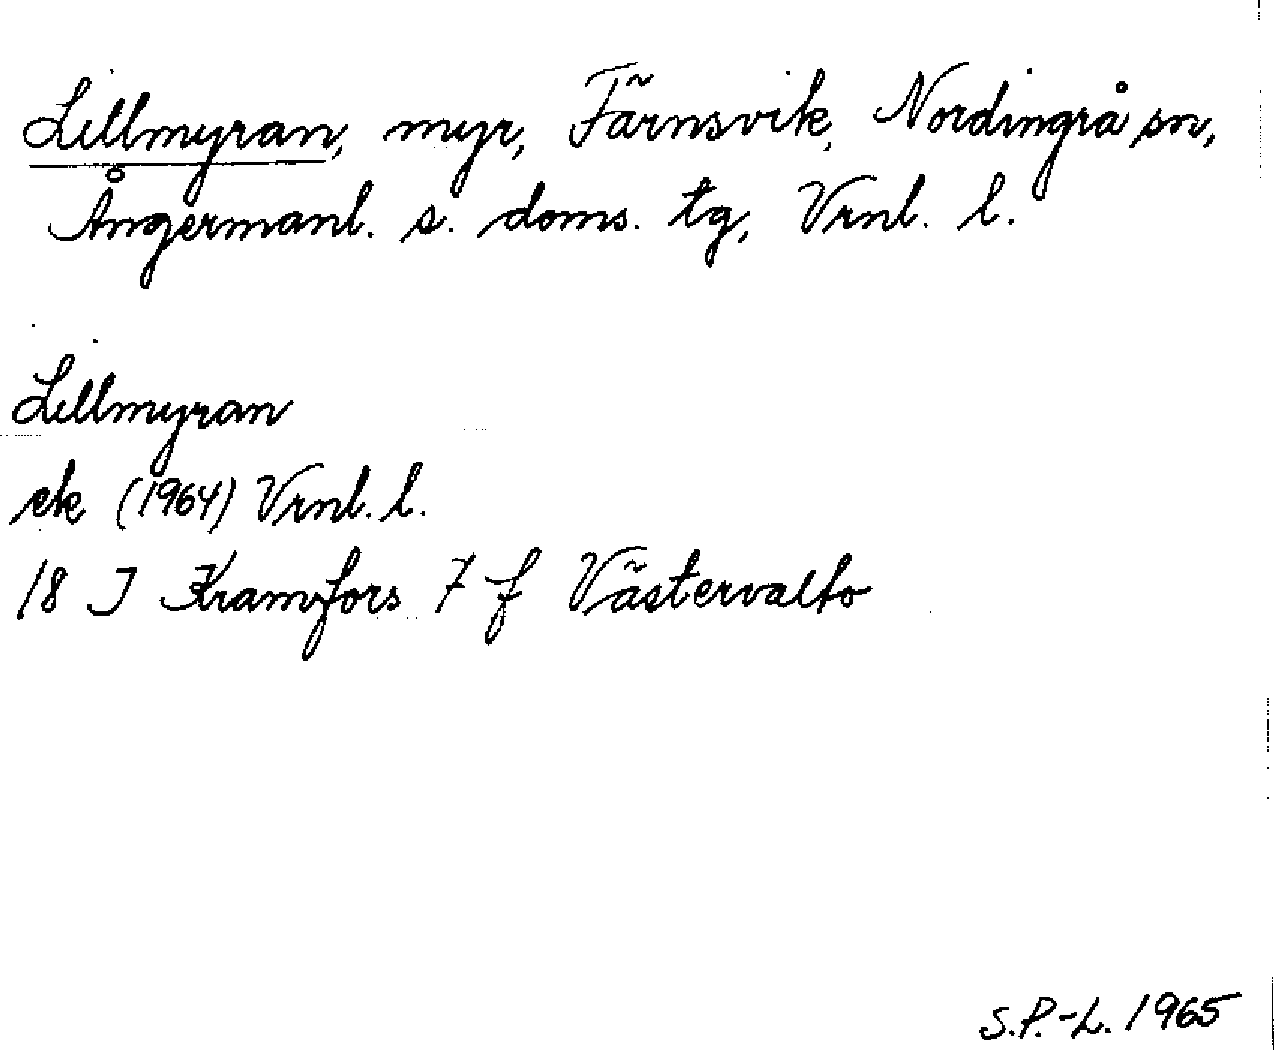 Lillmyran, myr, Färnsvik, Nordingrå sn,
Ångermanl. s. doms. tg, Vrnl. l.
Lillmyran
ek (1964) Vrnl. l.
18 J Kramfors 7 f Västervalto
S.P.-L. 1965